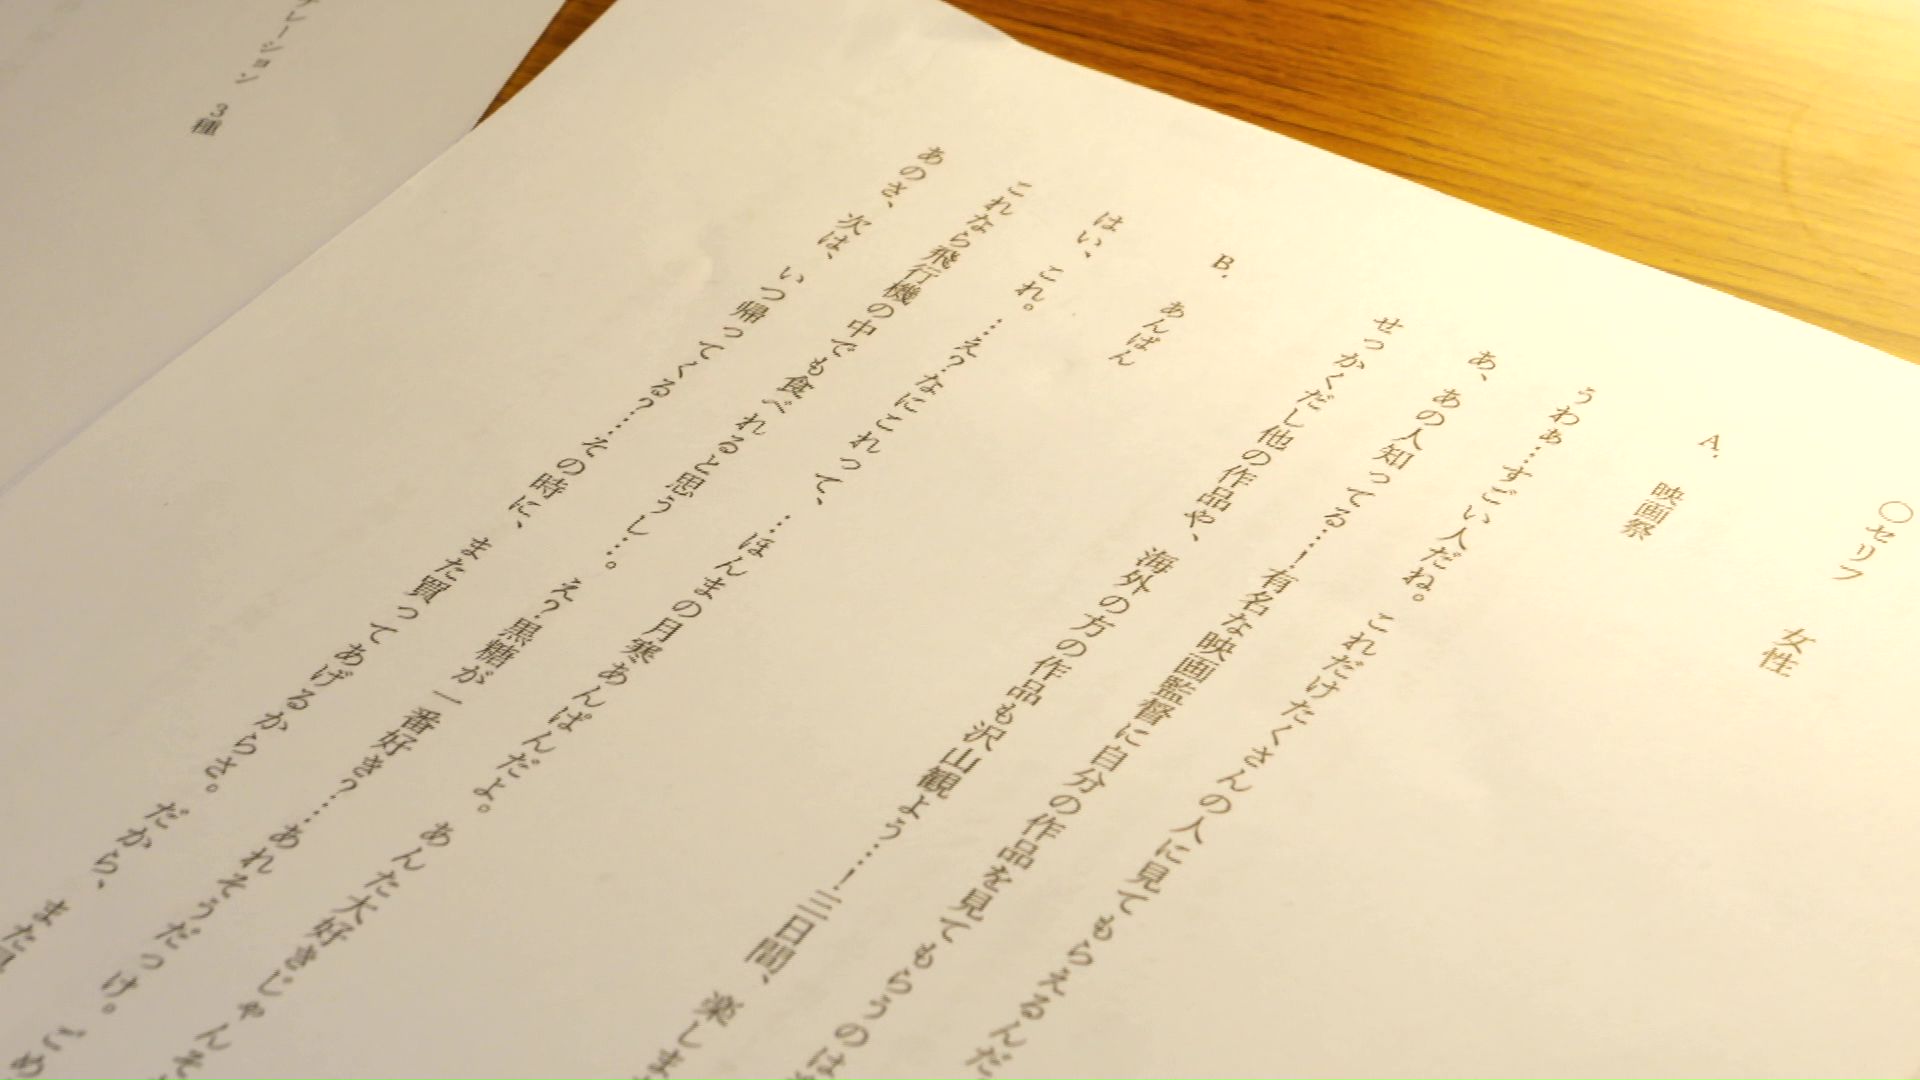 〇セリフ 女性
A. 映画祭
うわぁ…すごい人だね。これだけたくさんの人に見てもらえるんだ
あ、あの人知ってる…！有名な映画監督に自分の作品を見てもらうのは
せっかくだし他の作品や、海外の方の作品も沢山観よう…！三日間、楽しま
B. あんぱん
はい、これ。…え？なにこれって、…ほんまの月寒あんぱんだよ。あんた大好きじゃんそ
これなら飛行機の中でも食べれると思うし…。え？黒糖が一番好き？…あれそうだっけ。ごめ
あのさ、次は、いつ帰ってくる？…その時に、また買ってあげるからさ。だから、また
レーション 3種